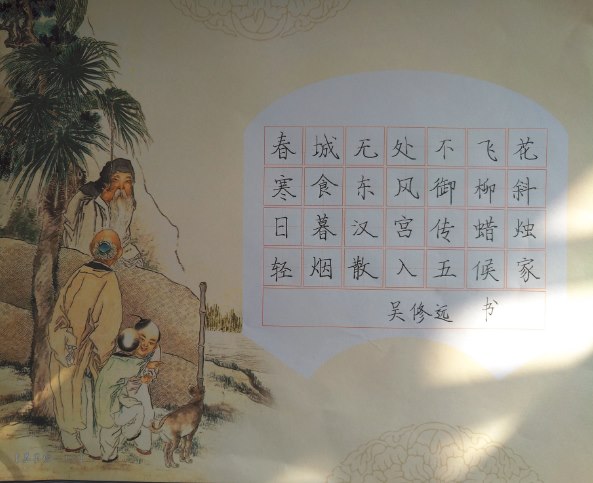 春城无处不飞花
寒食东风御柳斜
日暮汉宫传蜡烛
轻烟散入五候家
吴修远 书